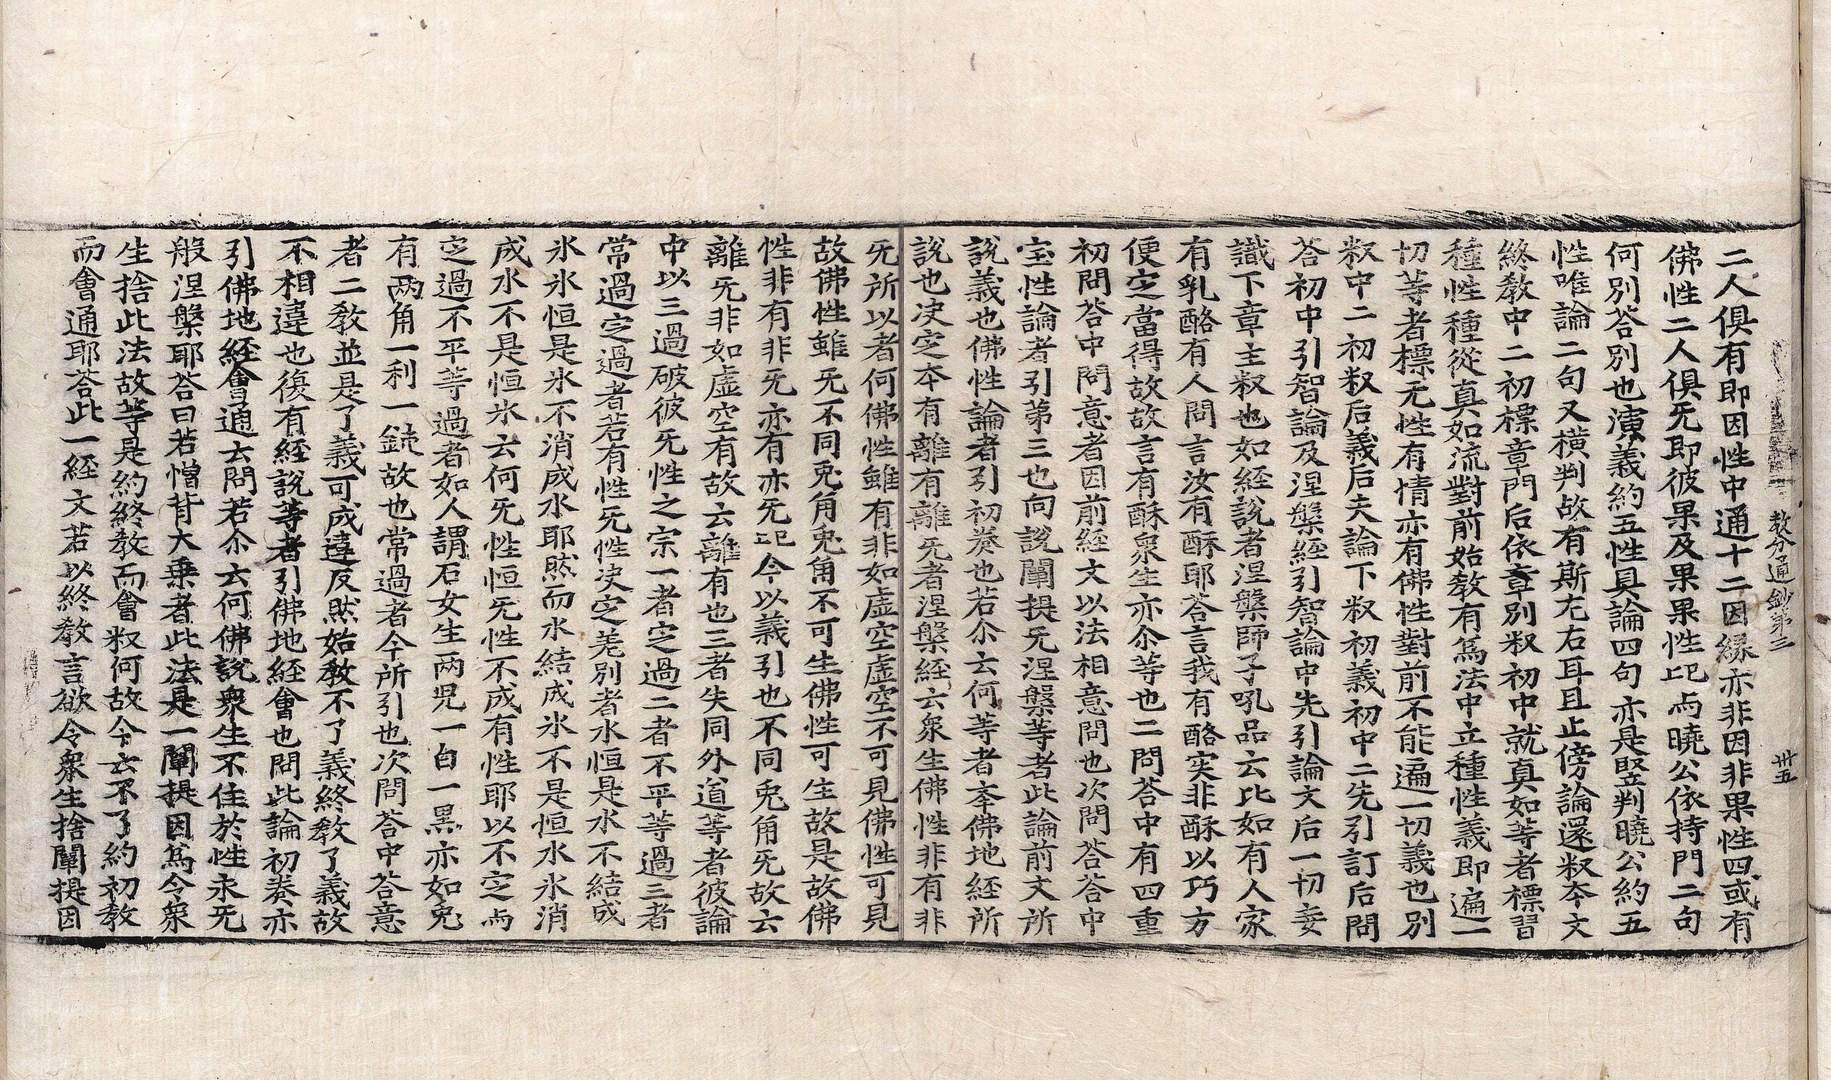 教分通鈔第三　卅五
二人俱有即因性中通十二因緣亦非因非果性四或有
佛性二人俱旡即彼果及果果性巳上曉公依持門二句
何別荅別也演義約五性具論四句亦是竪判曉公約五
性唯論二句又橫判故有斯左右耳且止傍論還釈夲文
終教中二初標章門后依章別釈初中就真如等者標習
種性種從真如流對前始教有爲法中立種性義即遍一
切等者標旡性有情亦有佛性對前不能遍一切義也別
釈中二初釈后義后夫論下釈初義初中二先引訂后問
荅初中引智論及涅槃經引智論中先引論文后一切妄
識下章主釈也如經說者涅槃師子吼品云比如有人家
有乳酪有人問言汝有酥耶荅言我有酪实非酥以巧方
便定當得故故言有酥衆生亦尒等也二問荅中有四重
初問荅中問意者因前經文以法相意問也次問荅荅中
宝性論者引第三也向說闡提旡涅槃等者此論前文所
說義也佛性論者引初卷也若尒云何等者夲佛地經所
說也决定夲有離有離旡者涅槃經云衆生佛性非有非
旡所以者何佛性雖有非如虛空虛空不可見佛性可見
故佛性雖旡不同兎角兎角不可生佛性可生故是故佛
性非有非旡亦有亦旡巳今以義引也不同兎角旡故云
離旡非如虛空有故云離有也三者失同外道等者彼論
中以三過破彼旡性之宗一者定過二者不平等過三者
常過定過者若有性旡性决定差別者水恒是水不結成
氷氷恒是氷不消成水耶然而水結成氷不是恒水氷消
成水不是恒氷云何旡性恒旡性不成有性耶以不定上
定過不平等過者如人謂石女生兩児一白一黒亦如兎
有兩角一利一鈍故也常過者今所引也次問荅中荅意
者二教並是了義可成違反然始教不了義終教了義故
不相違也復有經說等者引佛地經會也問此論初卷亦
引佛地經會通去問若尒云何佛說衆生不住於性永旡
般涅槃耶荅曰若憎背大乗者此法是一闡提因爲令衆
生捨此法故等是約終教而會釈何故今云不了約初教
而會通耶荅此一經文若以終教言欲令衆生捨闡提因